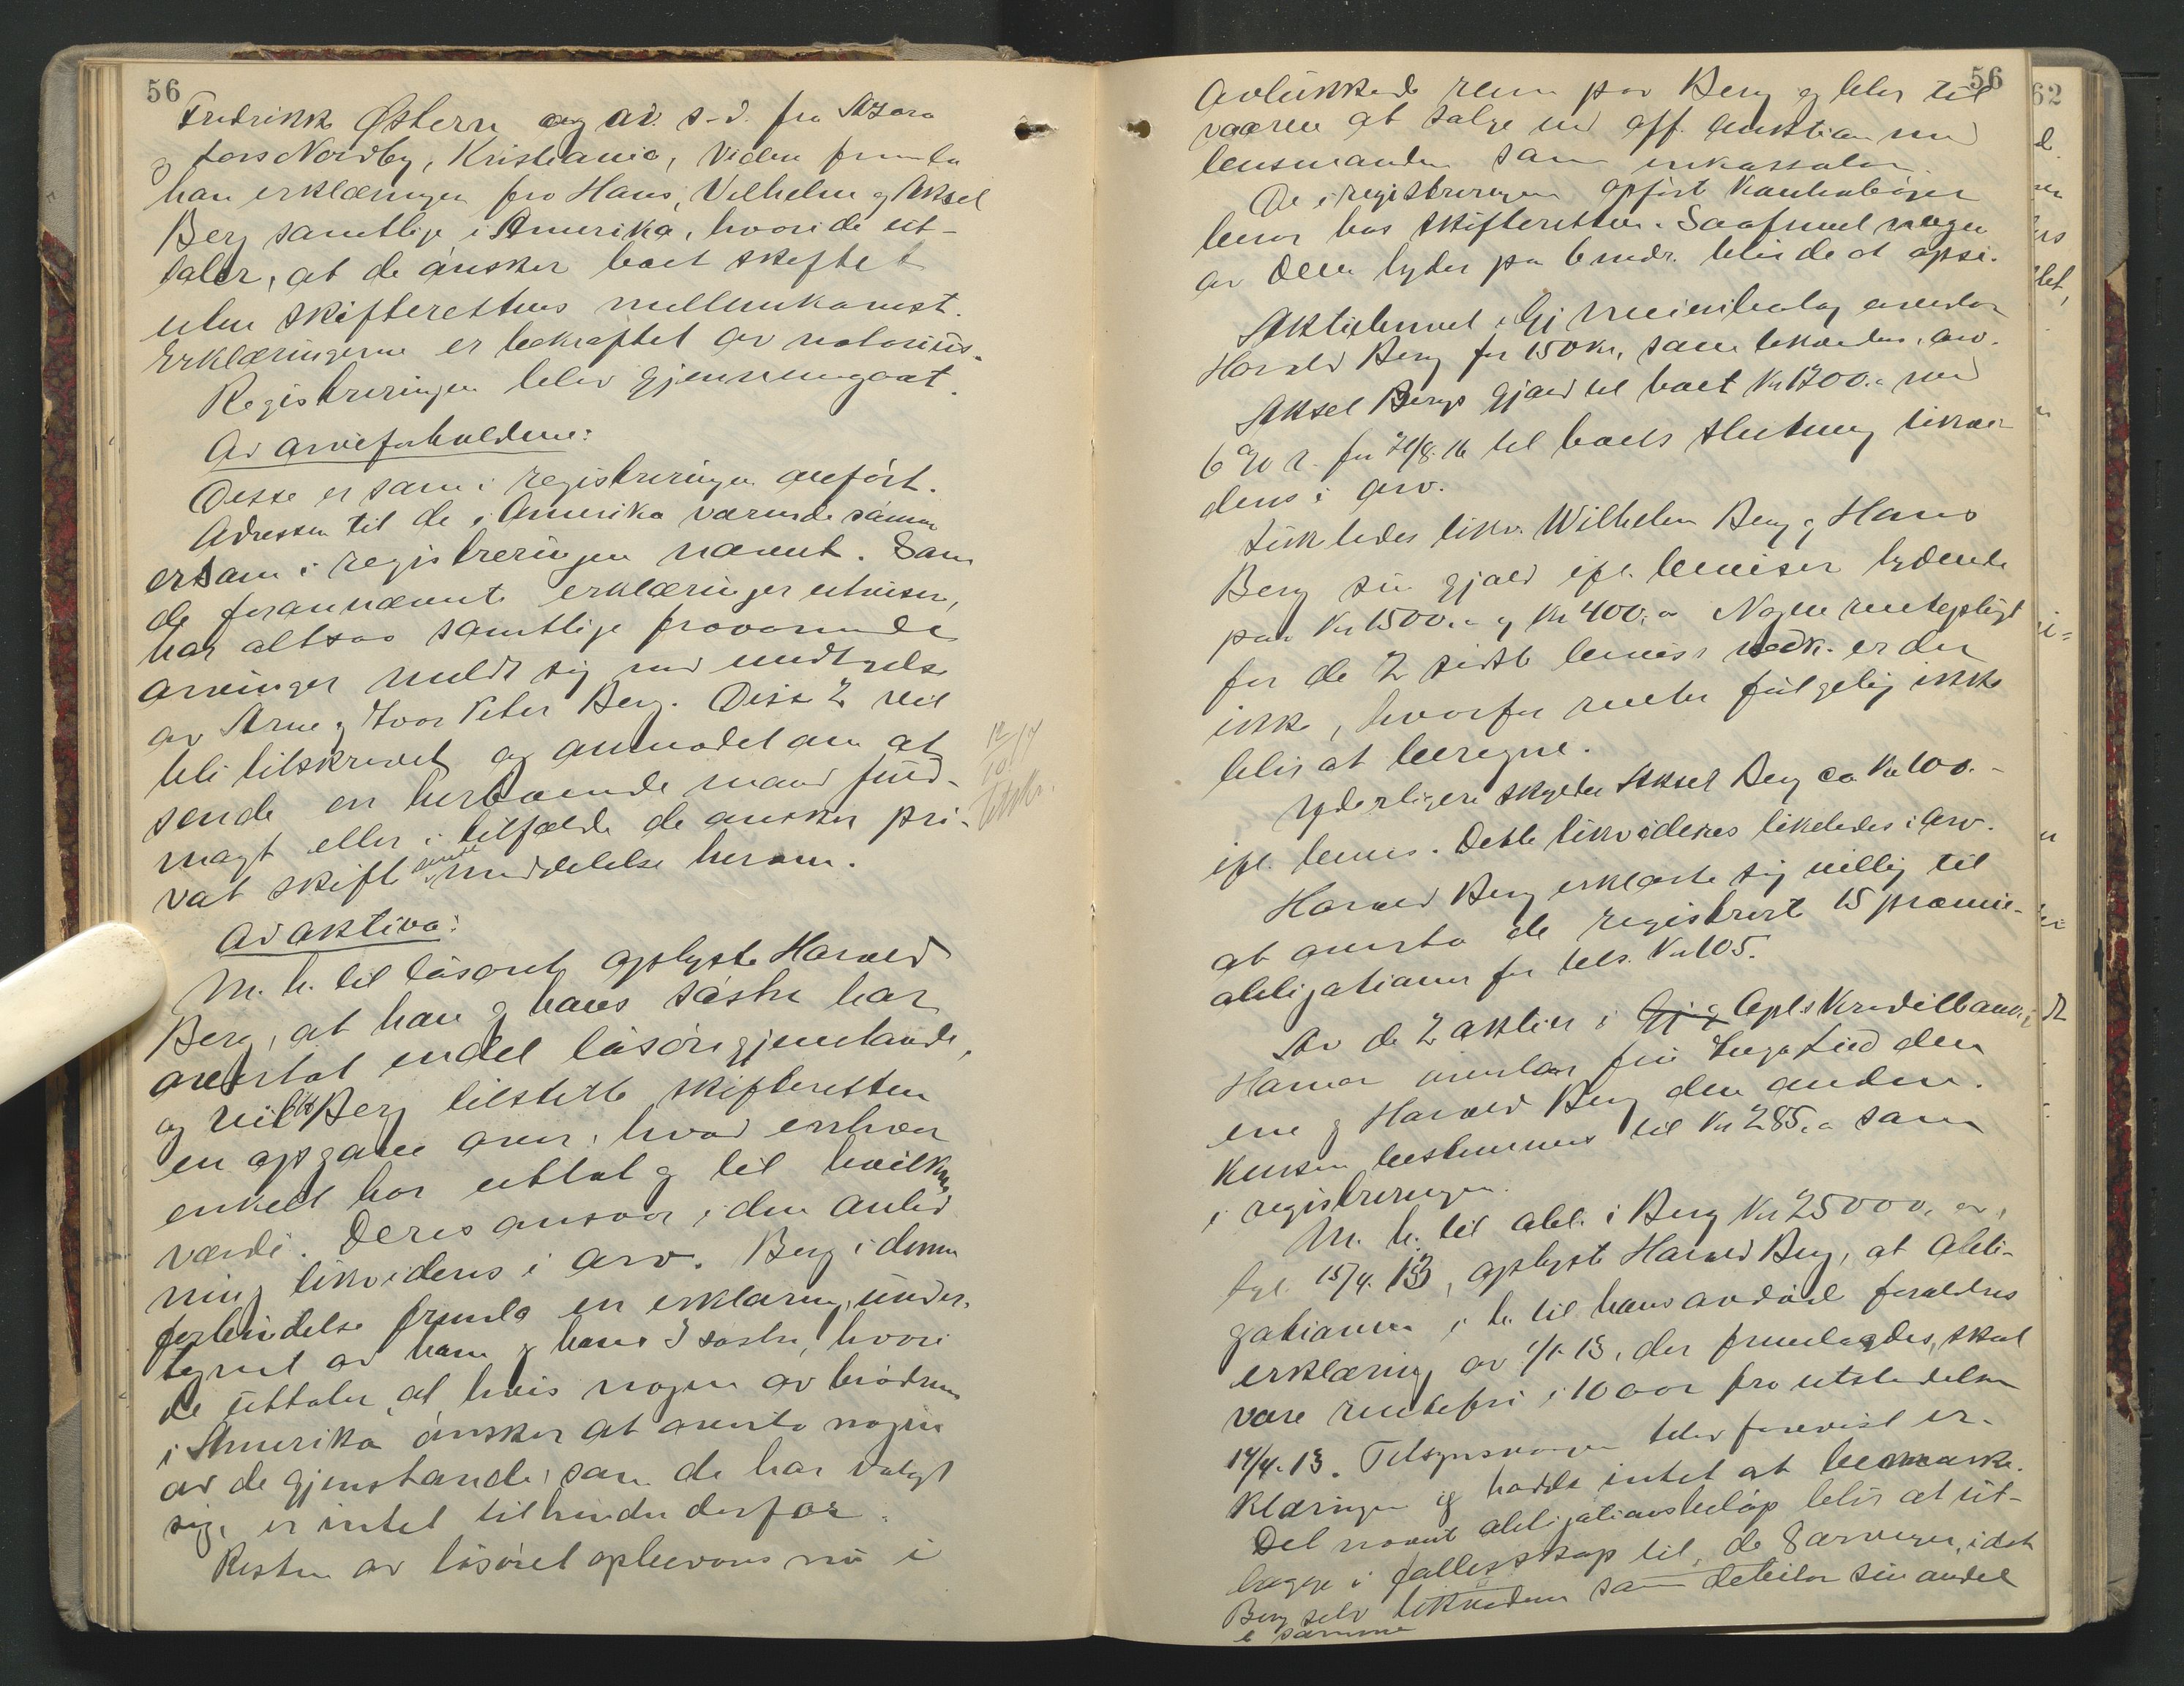 56
Fredrikk Østern og av s.d. fra Azora
og Lars Nordby, Kristiania, Viden fremla
han erklæringer fra Hans, Vilhelm og Aksel
Berg samtlige i Amerika, hvori de ut-
taler, at de ønsker boet skiftet
uten skifterettens mellemkomst.
Erklæringerne er bekræftet av notarius.
Registreringen blev gjennemgaat.
Ad arveforholdene:
Disse er som i registreringen anført.
Adressen til de i Amerika værende sønner
er som i registreringen nævnt. Som
de forannævnte erklæringer utviser,
har altsaa samtlige fraværende
arvinger meldt sig med undtagelse
av Arne og Ivar Peter Berg. Disse 2 vil
bli tilskrevet og anmodet om at
sende en herboende mand fuld-
magt eller i tilfælde de ønsker pri-
vat skifte sende meddelelse herom.
12/10 17
utskr.
Ad aktiva:
M. h. til løsøret oplyste Harald
Berg, at han og hans søstre har
overtat endel løsøregjenstande,
og vil Berg tilstille skifteretten
en opgave over, hvad enhver
enkelt har uttat og til hvilken
værdi. Deres ansvar i den anled
ning likvideres i arv. Berg i denne
forbindelse fremla en erklæring, under-
tegnet av ham og hans 3 søstre, hvori
de uttaler, at hvis nogen av brødrene
i Amerika ønsker at overta nogen
av de gjenstande, som de har valgt
sig, er intet tilhinder derfor.
Resten av løsøret opbevares nu i
56
avlukkede rum paa Berg og blir til
vaaren at sælge ved off. auktion med
lensmanden som inkassator.
De i registreringen opført bankbøger
beror hos skifteretten. Saafremt nogen
av dem lyder paa 6 mdr. blir de at opsi.
Aktiebrevet i Gj. meieribolag overtar
Harald Berg for 150 kr, som likvideres i arv.
Aksel Bergs gjæld til boet Kr 1700.- med
6 % r. fra 21/8. 16 til boets slutning likvi
deres i arv.
Likeledes likv. Wilhelm Berg og Hans
Berg sin gjæld ifl. beviser lydende
paa Kr 1500.- og Kr 400.- Nogen rentepligt
for de 2 sidste bevisers vedk. er der
ikke, hvorfor renter følgelig ikke
blir at beregne.
Yderligere skylder Aksel Berg ca Kr 100.-
ifl. bevis. Dette likvideres likeledes i arv.
Harald Berg erklærte sig villig til
at overta de registrerte 15 præmie-
obligationer for tils. Kr 105.
Av de 2 aktier i Opl.s Kreditbank,
Hamar overtar fru Inga Lied den
ene og Harald Berg den anden.
Kursen bestemmes til Kr 285.- som
i registreringen.
M. h. til obl. i Berg Kr 25000, av,
tgl. 15/4. 13, oplyste Harald Berg, at obli-
gationen i h. til hans avdøde forældres
erklæring av 1/1. 13, der fremlagdes, skal
være rentefri i 10 aar fra utstedelsen
14/4. 13. Tilsynsværgen blev forevist er-
klæringen og hadde intet at bemærke.
Det nævnte obligationsbeløp blir at ut-
lægge i fællesskap til de 8 arvinger, idet
Berg selv likviderer som debitor sin andel
i samme
62